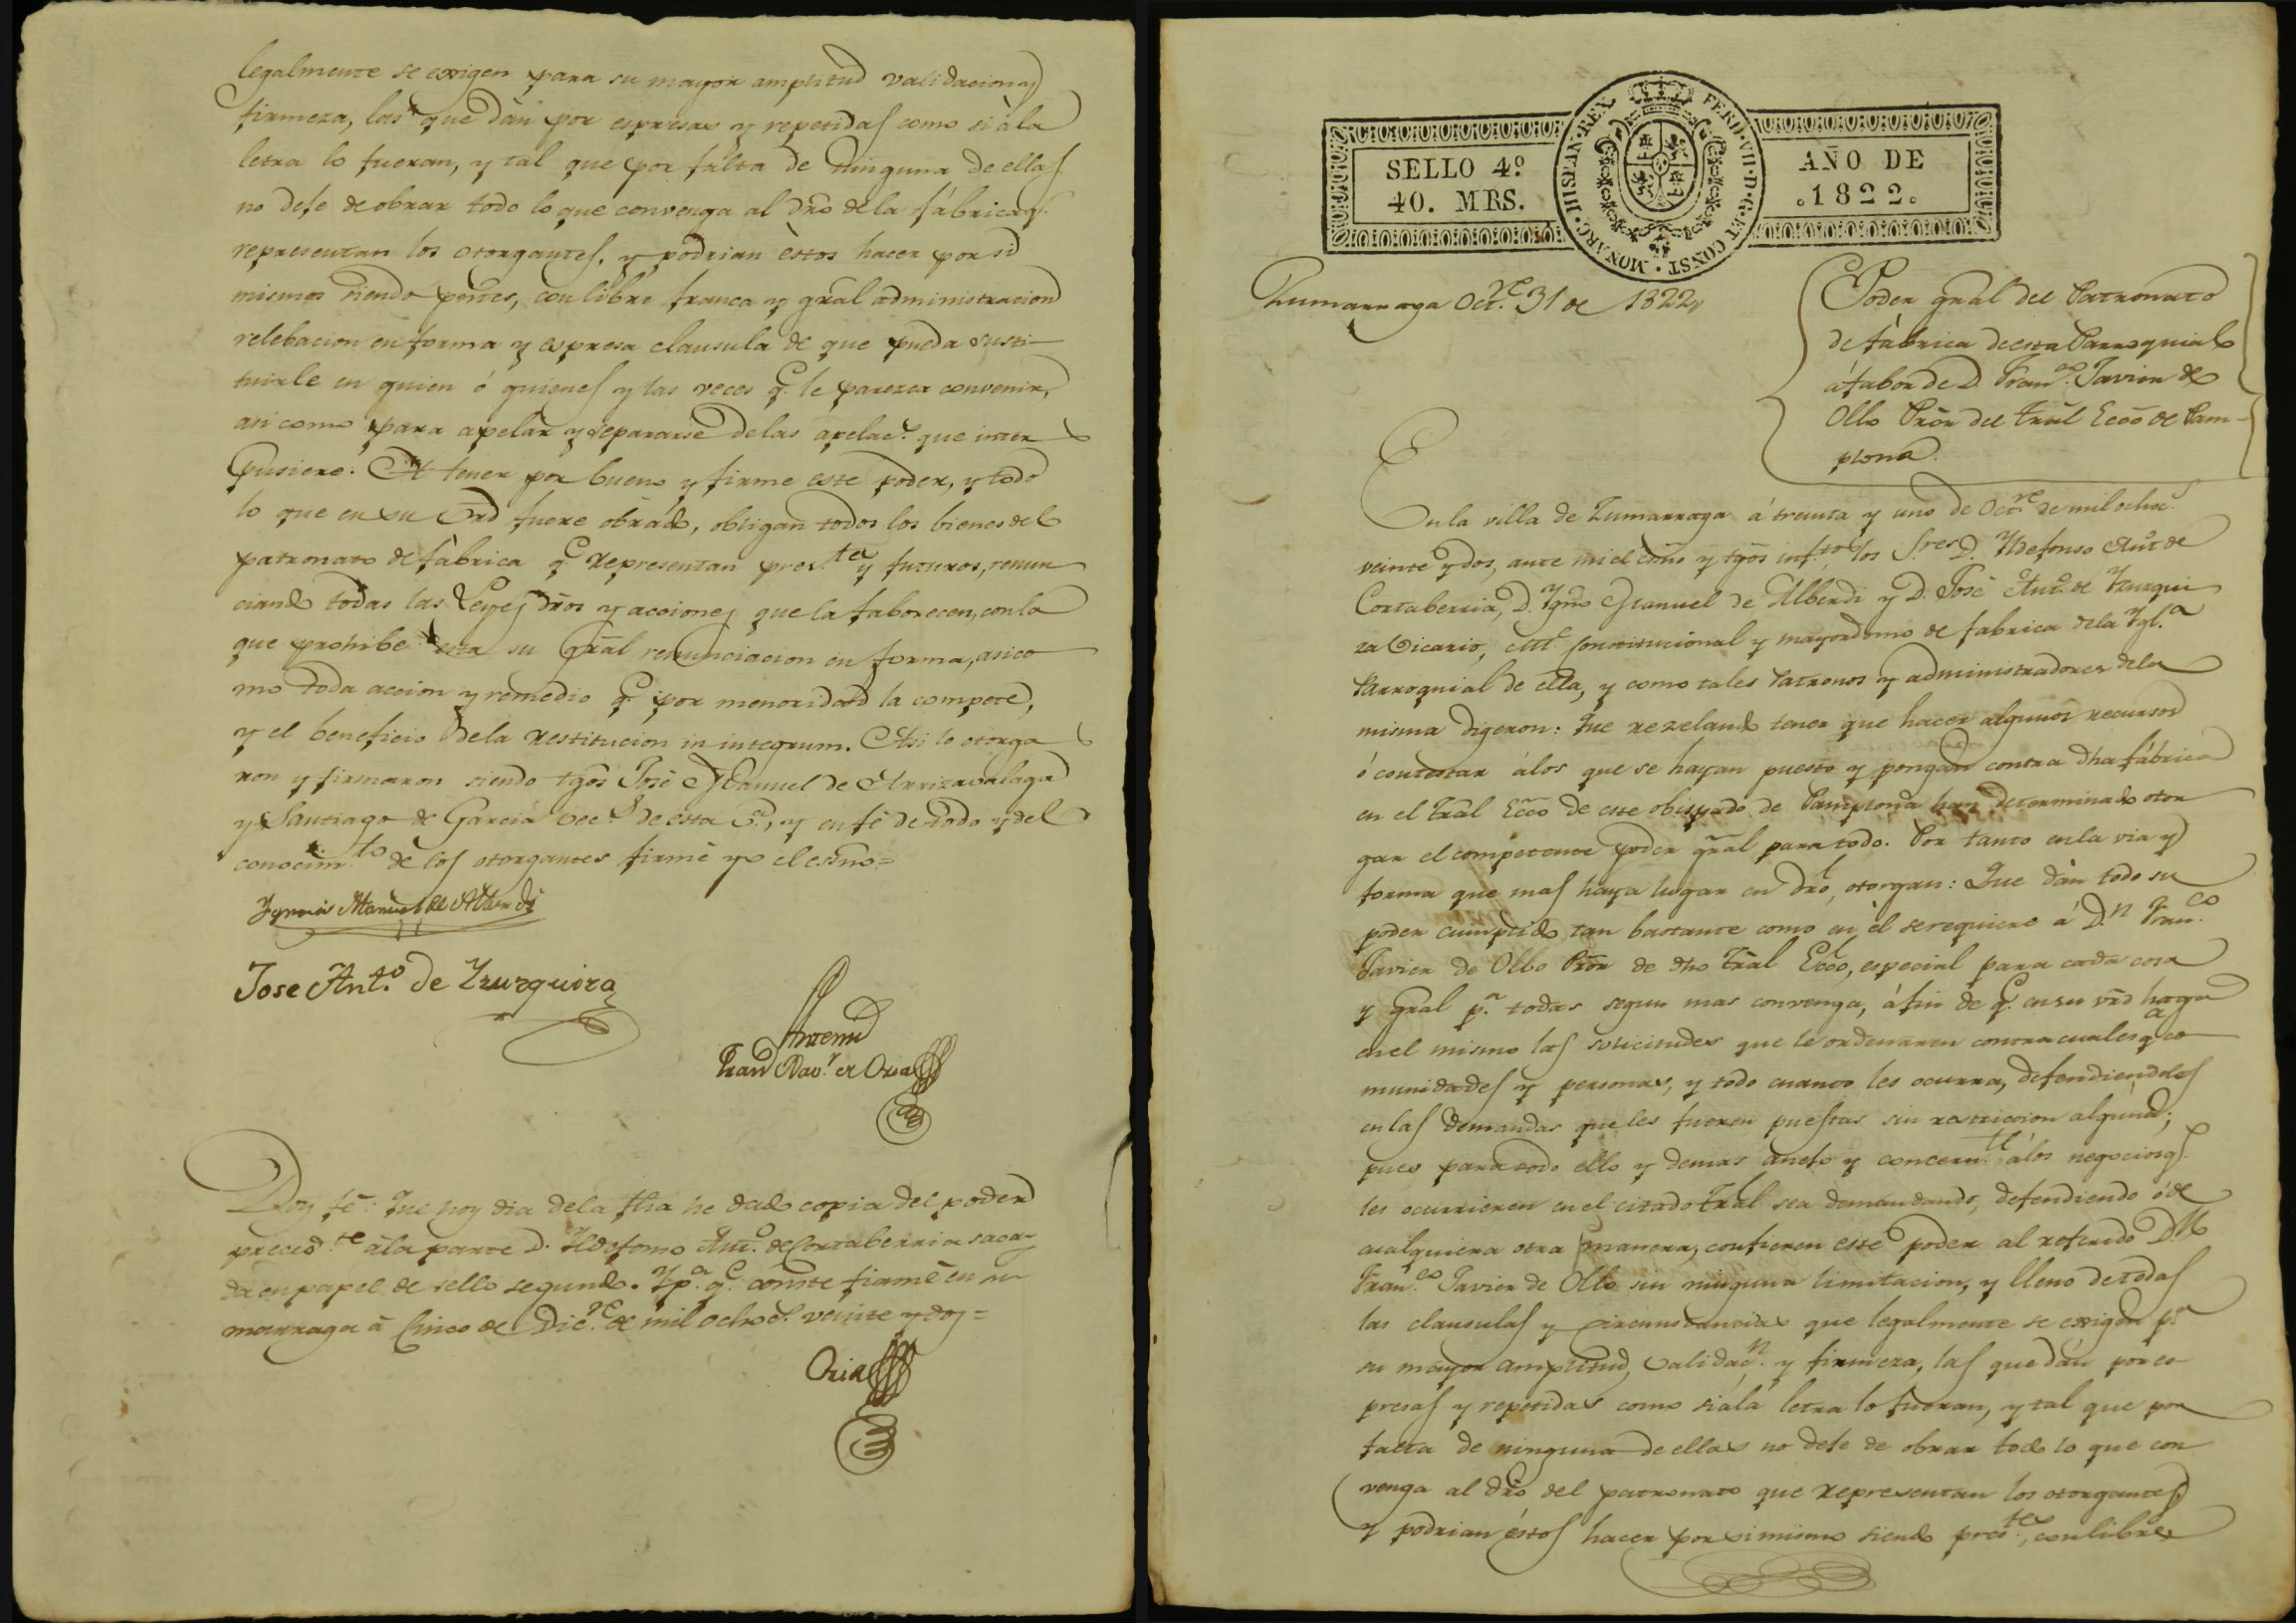 legalmente se exigen para su mayor amplitud validacion y
firmeza, las que dàn por espresas y repetidas como si à la
letra lo fueran, y tal que por falta de ninguna de ellas
no deje de obrar todo lo que convenga al dr̃o de la fábrica q.ᵉ
representan los otorgantes, y podrian èstos hacer por si
mismos siendo pr̃tes, con libre franca y gr̃al administracion
relebacion en forma y espresa clausula de que pueda susti-
tuirle en quien ó quienes y las veces q.ᵉ le parezca convenir,
asi como para apelar y separarse de las apelac.ˢ que inter
pusiere. A tener por bueno y firme este poder, y todo
lo que en su vr̃d fuere obrado, obligan todos los bienes del
patronato de fàbrica q.ᵉ representan pres.ᵗᵉˢ y futuros, renun
ciando todas las Leyes dr̃os y acciones que la faborecen, con la
que prohibe esta su gr̃al renunciacion en forma, asi co
mo toda accion y remedio q.ᵉ por menoridad la compete,
y el beneficio de la restitucion in integrum. Asi lo otorga
ron y firmaron siendo tgõs José Manuel de Arrizavalaga
y Santiago de Garcia vec.ˢ de esta v.ᵃ, y en fé de todo y del
conocim.ᵗᵒ de los otorgantes firmé yo el esñno=
Ygnacio Manuel de Alberdi
Jose Ant.º de Yzurquiza
Antemi
de Oria
Doy fé: Que hoy dia de la fh̃a he dado copia del poder
preced.ᵗᵉ à la parte D. Yldefonso Ant.º de Cortaberria saca-
da en papel de sello segundo. Y p.ᵃ q.ᵉ conste firmé en Zu
marraga à Cinco de Dic.ʳᵉ de mil ochoc.ˢ veinte y dos=
Oria
SELLO 4º
40. MRS.
FERD·VII·D·G·ET CONST·MONARC·HISPAN·REX
AÑO DE
1822
Zumarraga Oct.ʳᵉ 31 de 1822
Poder gr̃al del Patronato
de fàbrica de esta Parroquial
á fabor de D. Fran.ᶜᵒ Javier de
Ollo Pr̃or del Trãl Ecc̃o de Pam-
plona.
En la villa de Zumarraga á treinta y uno de Oct.ʳᵉ de mil ochoc.ˢ
veinte y dos, ante mi el esñno y tgõs inf.ᵗᵒˢ, los S.ʳᵉˢ D. Yldefonso Ant.º de
Cortaberria, D. Ygñ.º Manuel de Alberdi y D. José Ant.º de Yzurqui
za Vicario, Alc.ᵉ Constitucional y mayordomo de fabrica de la Ygl.ᵃ
Parroquial de ella, y como tales Patronos y administradores de la
misma digeron: Que rezelando tener que hacer algunos recursos
ó contestar à los que se hayan puesto y pongan contra dh̃a fábrica
en el Trãl Ecc̃o de este obispado de Pamplona han determinado otor
gar el competente poder gr̃al para todo. Por tanto en la via y
forma que mas haya lugar en Dr̃o, otorgan: Que dàn todo su
poder cumplido tan bastante como en él se requiere á D.ⁿ Fran.ᶜᵒ
Javier de Ollo Pr̃or de dh̃o Trãl Ecc̃o, especial para cada cosa
y gr̃al p.ᵃ todas segun mas convenga, á fin de q.ᵉ en su vr̃d haga
en el mismo las solicitudes que le ordenaren contra cualesq.ᵃ co
munidades y personas, y todo cuanto les ocurra, defendiendoles
en las demandas que les fueren puestas sin restriccion alguna;
pues para todo ello y demas anejo y concern.ᵗᵉ á los negocios q.ᵉ
les ocurrieren en el citado Trãl sea demandando, defendiendo ó de
cualquiera otra manera, confieren este poder al referido D.ⁿ
Fran.ᶜᵒ Javier de Ollo sin ninguna limitacion, y lleno de todas
las clausulas y circunstancias que legalmente se exigen p.ᵃ
su mayor amplitud, validac.ⁿ y firmeza, las que dán por es-
presas y repetidas como si à la letra lo fueran, y tal que por
falta de ninguna de ellas no deje de obrar todo lo que con
venga al dr̃o del patronato que representan los otorgantes
y podrian éstos hacer por si mismo siendo pres.ᵗᵉˢ, con libre